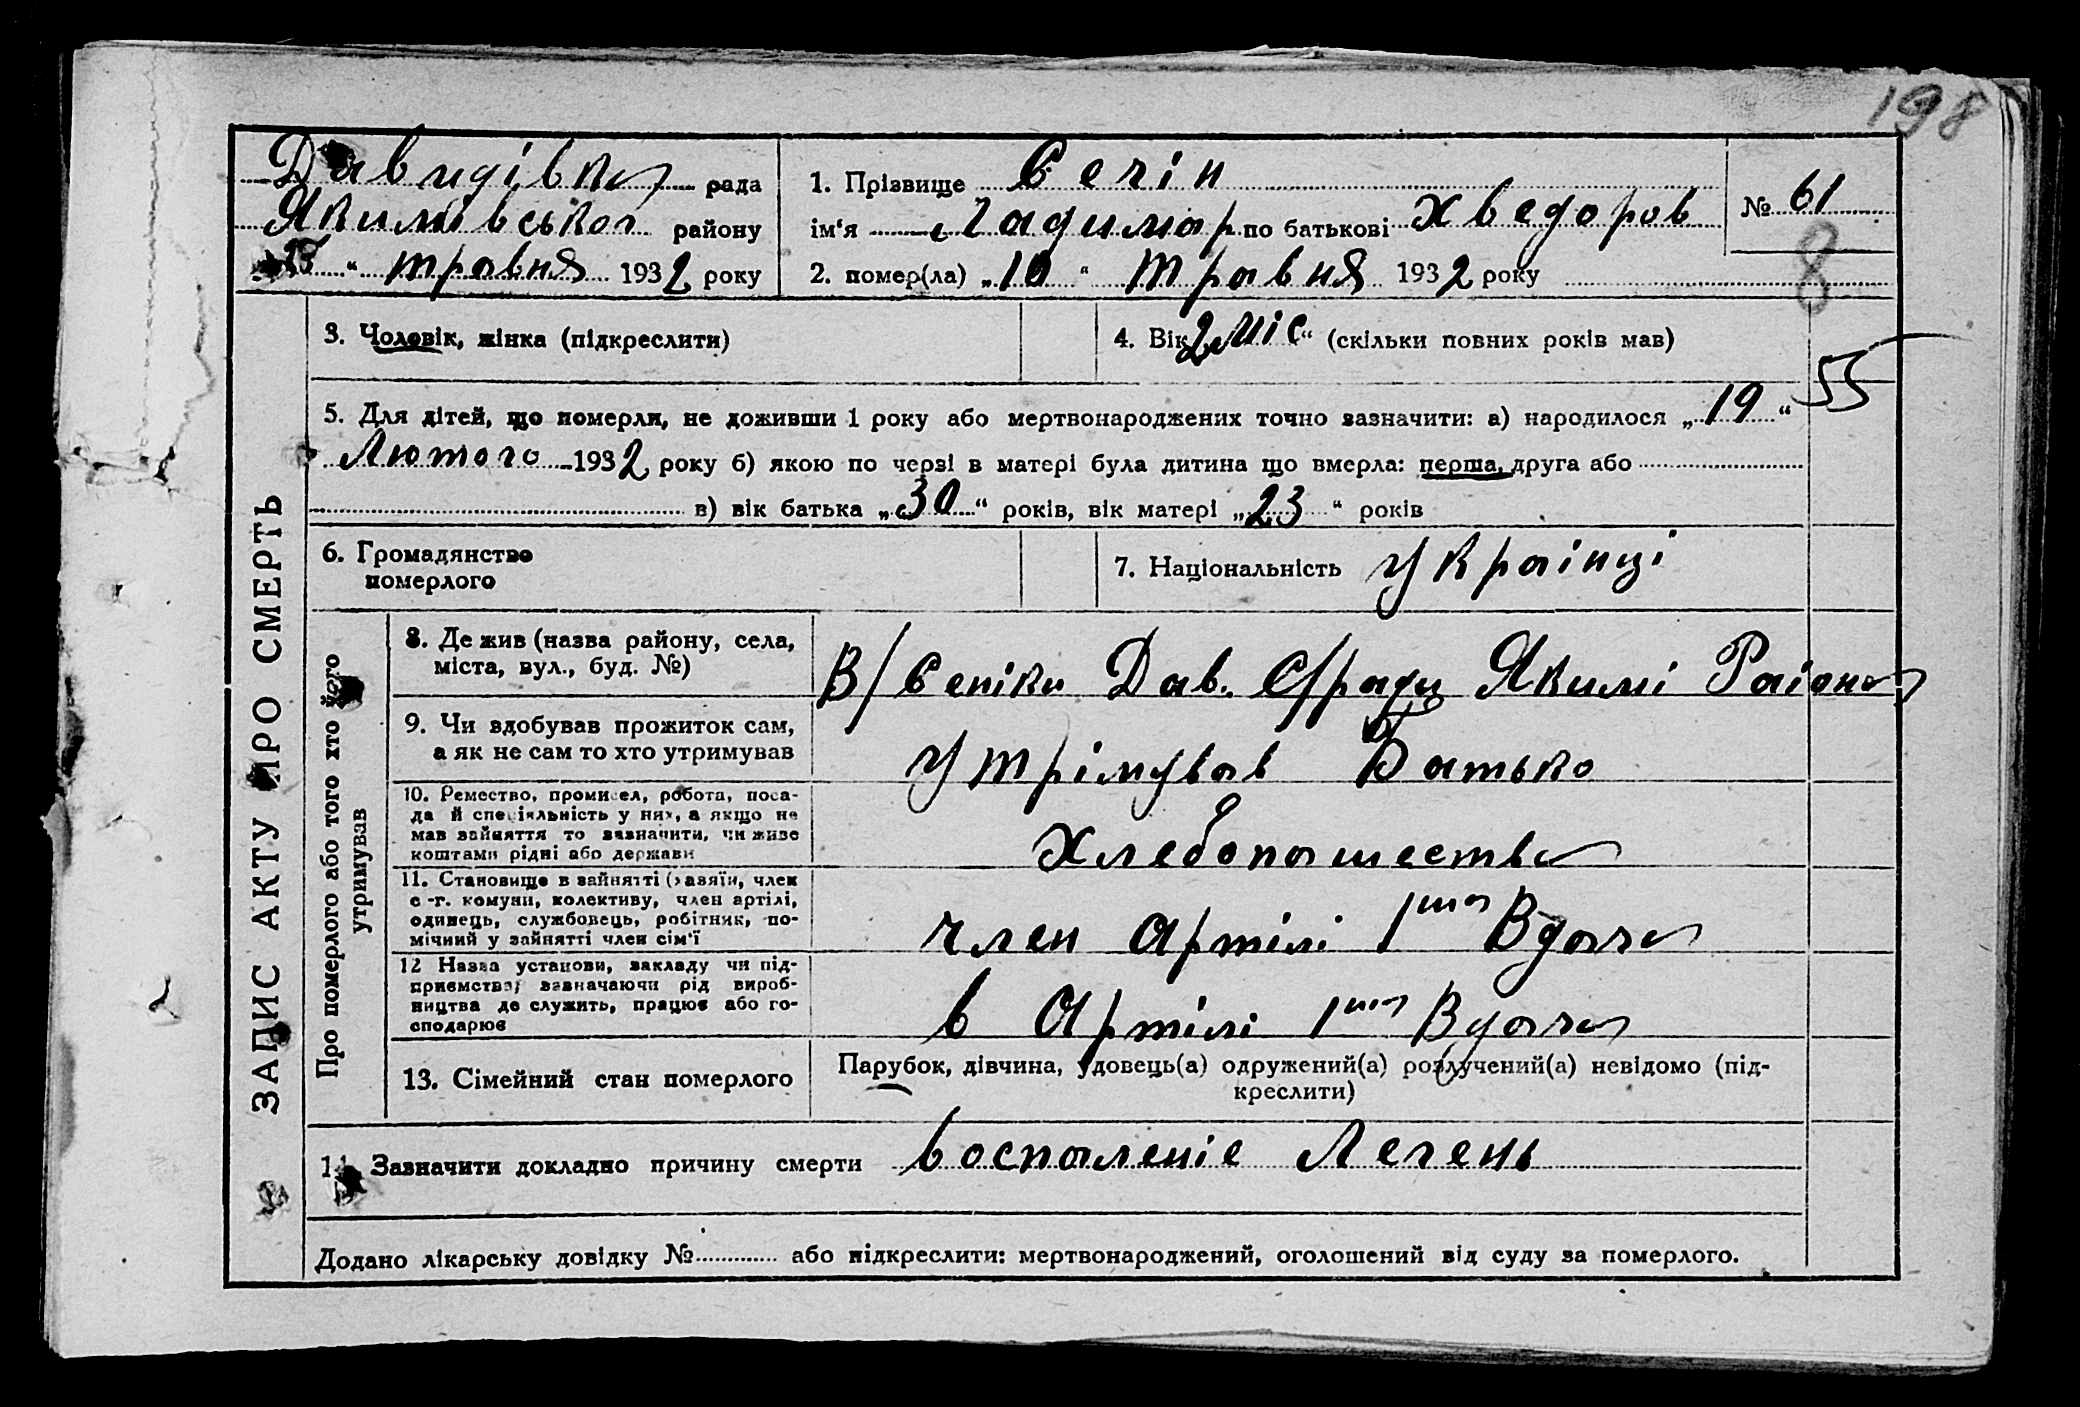 198
Давидівка рада
Якимівської району
" травня 1932 року
1. Прізвище Сечін
ім'я по батькові Хведоров
2. помер(ла) „10" Травня 1932 року
№ 61
8
ЗАПИС АКТУ ПРО СМЕРТЬ
3. Чоловік, жінка (підкреслити)
4. Вік 2 міс" (скільки повних років мав)
55
5. Для дітей, що померли, не доживши 1 року або мертвонароджених точно зазначити: а) народилося „19"
Лютого 1932 року б) якою по черзі в матері була дитина що вмерла: перша, друга або
в) вік батька „30" років, вік матері „23" років
6. Громадянство
померлого
7. Національність Украінці
Про померлого або того хто його
утримував
8. Де жив (назва району, села,
міста, вул., буд. №)
В/ Дав. С/ради Якимі Раіона
9. Чи вдобував прожиток сам,
а як не сам то хто утримував
Утрімував Батько
10. Ремество, промисел, робота, поса-
да й спеціяльність у них, а якщо не
мав зайняття то зазначити, чи живе
коштами рідні або держави
Хлебопашество
11. Становище в зайнятті (хазяїн, член
с.-г. комуни, колективу, член артілі,
одинець, службовець, робітник, по-
мічний у зайнятті член сім'ї
член Артілі
12 Назва установи, закладу чи під-
приємства, зазначаючи рід вироб-
ництва де служить, працює або го-
сподарює
в Артілі
13. Сімейний стан померлого
Парубок, дівчина, удовець(а) одружений(а) розлучений(а) невідомо (під-
креслити)
14. Зазначити докладно причину смерти воспаленіе Легень
Додано лікарську довідку № або підкреслити: мертвонароджений, оголошений від суду за померлого.